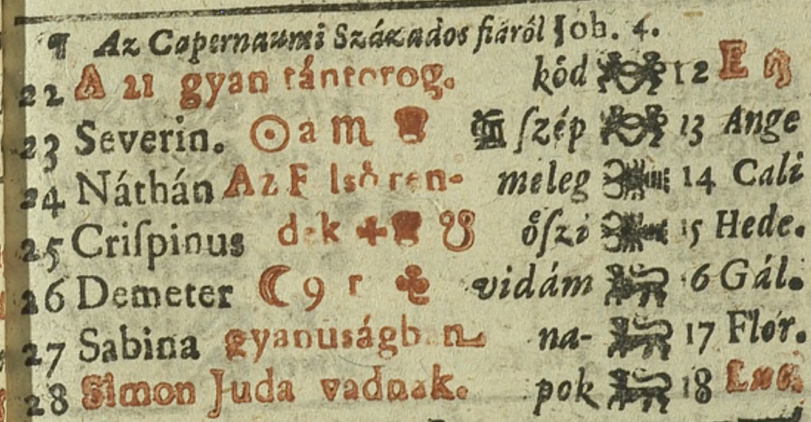 ¶ Az Capernaumi Százados fiáról Joh. 4.
22 A 21 gyan tántorog. kőd 12
23 Severin. ☉ a m ſzép 13 Ange
24 Náthán Az F lső ren- meleg 14 Cali
25 Criſpinus ☋ őſzi 15 Hede.
26 Demeter ☾ 9 r vidám 6 Gál.
27 Sabina gyanuságb n na- 17 Flor.
28 Simon Juda vadnak. pok 18 Luc